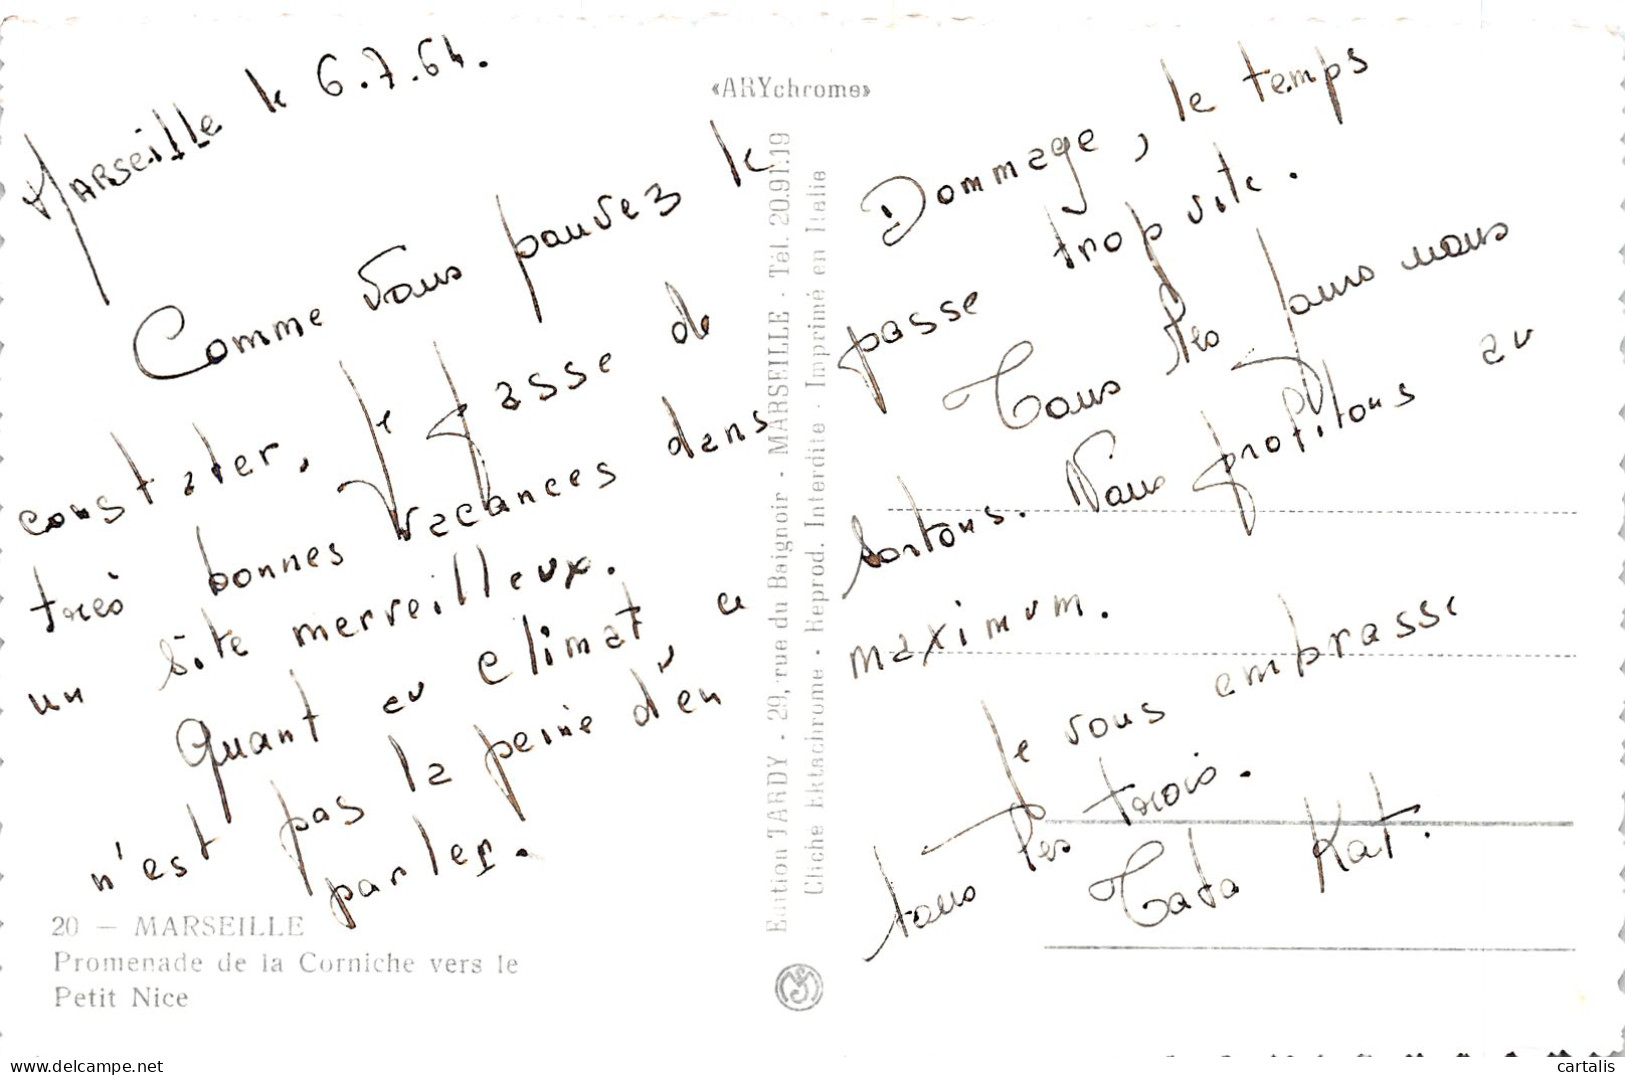 Marseille le 6.7.64.
Comme vous pouvez le
constater, je passe de
très bonnes vacances dans
un site merveilleux.
Quant au climat, ce
n'est pas la peine d'en
parler.
20 — MARSEILLE
Promenade de la Corniche vers le
Petit Nice
«ARYchrome»
Edition TARDY - 29, rue du Baignoir - MARSEILLE - Tél. 20.91.19
Cliché Ektachrome - Reprod. Interdite - Imprimé en Italie
Dommage, le temps
passe trop vite.
Tous les jours nous
sortons. Nous profitons au
maximum.
Je vous embrasse
tous les trois.
Tata Kat.
www.delcampe.net
cartalis